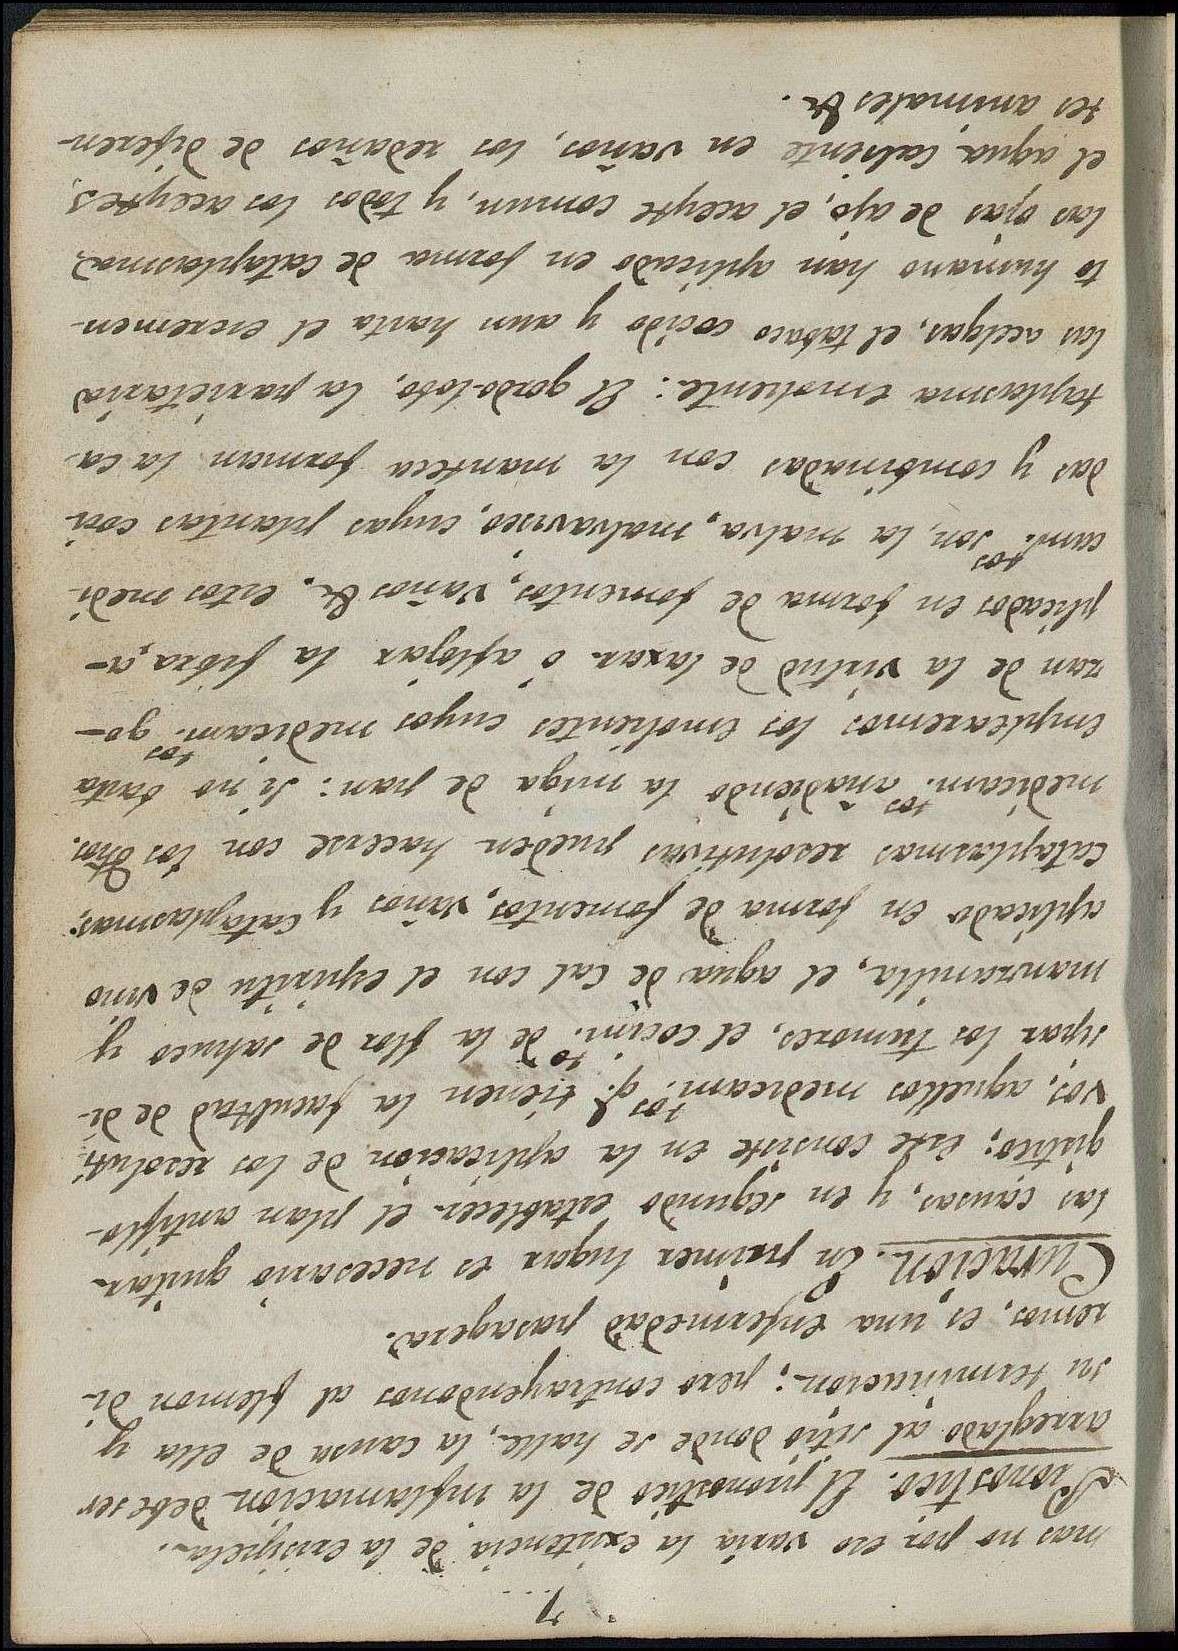 7
mas no por eso varia la existencia de la erisipela.
Pronostico. El pronostico de la inflamacion debe ser
arreglado al sitio donde se halle, la causa de ella y
su terminacion; pero contrayendonos al flemon di-
remos, es una enfermedad pasagera.
Curacion. En primer lugar es necesario quitar
las causas, y en segundo establecer el plan antiflo-
gistico; este consiste en la aplicacion de los resoluti-
vos, aquellos medicam.tos q.e tienen la facultad de di-
sipar los tumores, el cocim.to de la flor de sahuco y
manzanilla, el agua de cal con el espiritu de vino
aplicado en forma de fomentos, vaños y cataplasmas;
cataplasmas resolutivas pueden hacerse con los dhos.
medicam.tos añadiendo la miga de pan: si no basta
emplearemos los emolientes cuyos medicam.tos go-
zan de la virtud de laxar ó aflojar la fibra, a-
plicados en forma de fomentos, vaños &. estos medi-
cam.tos son, la malva, malvavisco, cuyas plantas coci
das y combinadas con la manteca forman la ca-
taplasma emoliente: El gordo-lobo, la parietaria
las acelgas, el tabaco cocido y aun hasta el excremen-
to humano han aplicado en forma de cataplasma,
las ojas de ajo, el aceyte comun, y todos los aceytes,
el agua caliente en vaños, los redaños de diferen-
tes animales &.